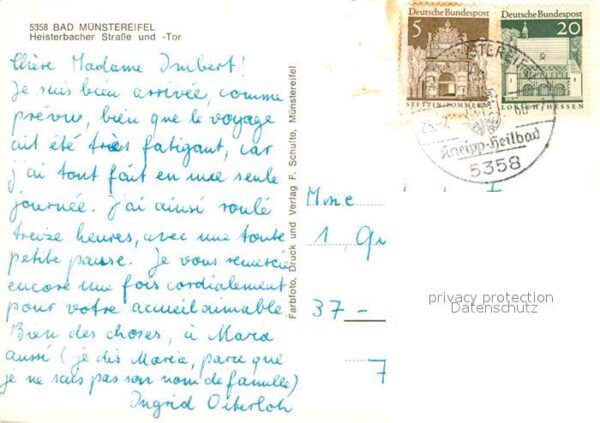 5358 BAD MÜNSTEREIFEL
Heisterbacher Straße und -Tor
Chère Madame Imbert!
Je suis bien arrivée, comme
prévu, bien que le voyage
ait été très fatigant, car
j'ai tout fait en une seule
journée. J'ai ainsi roulé
treize heures, avec une toute
petite pause. Je vous remercie
encore une fois cordialement
pour votre accueil aimable
Bien des choses, à Maria
aussi (je dis Maria, parce que
je ne sais pas son nom de famille)
Ingrid
Farbfoto, Druck und Verlag F. Schulte, Münstereifel
5
Deutsche Bundespost
STETTIN/POMMERN
Deutsche Bundespost
20
HESSEN
Kneipp-Heilbad
5358
Mme
1,
37-
7
privacy protection
Datenschutz